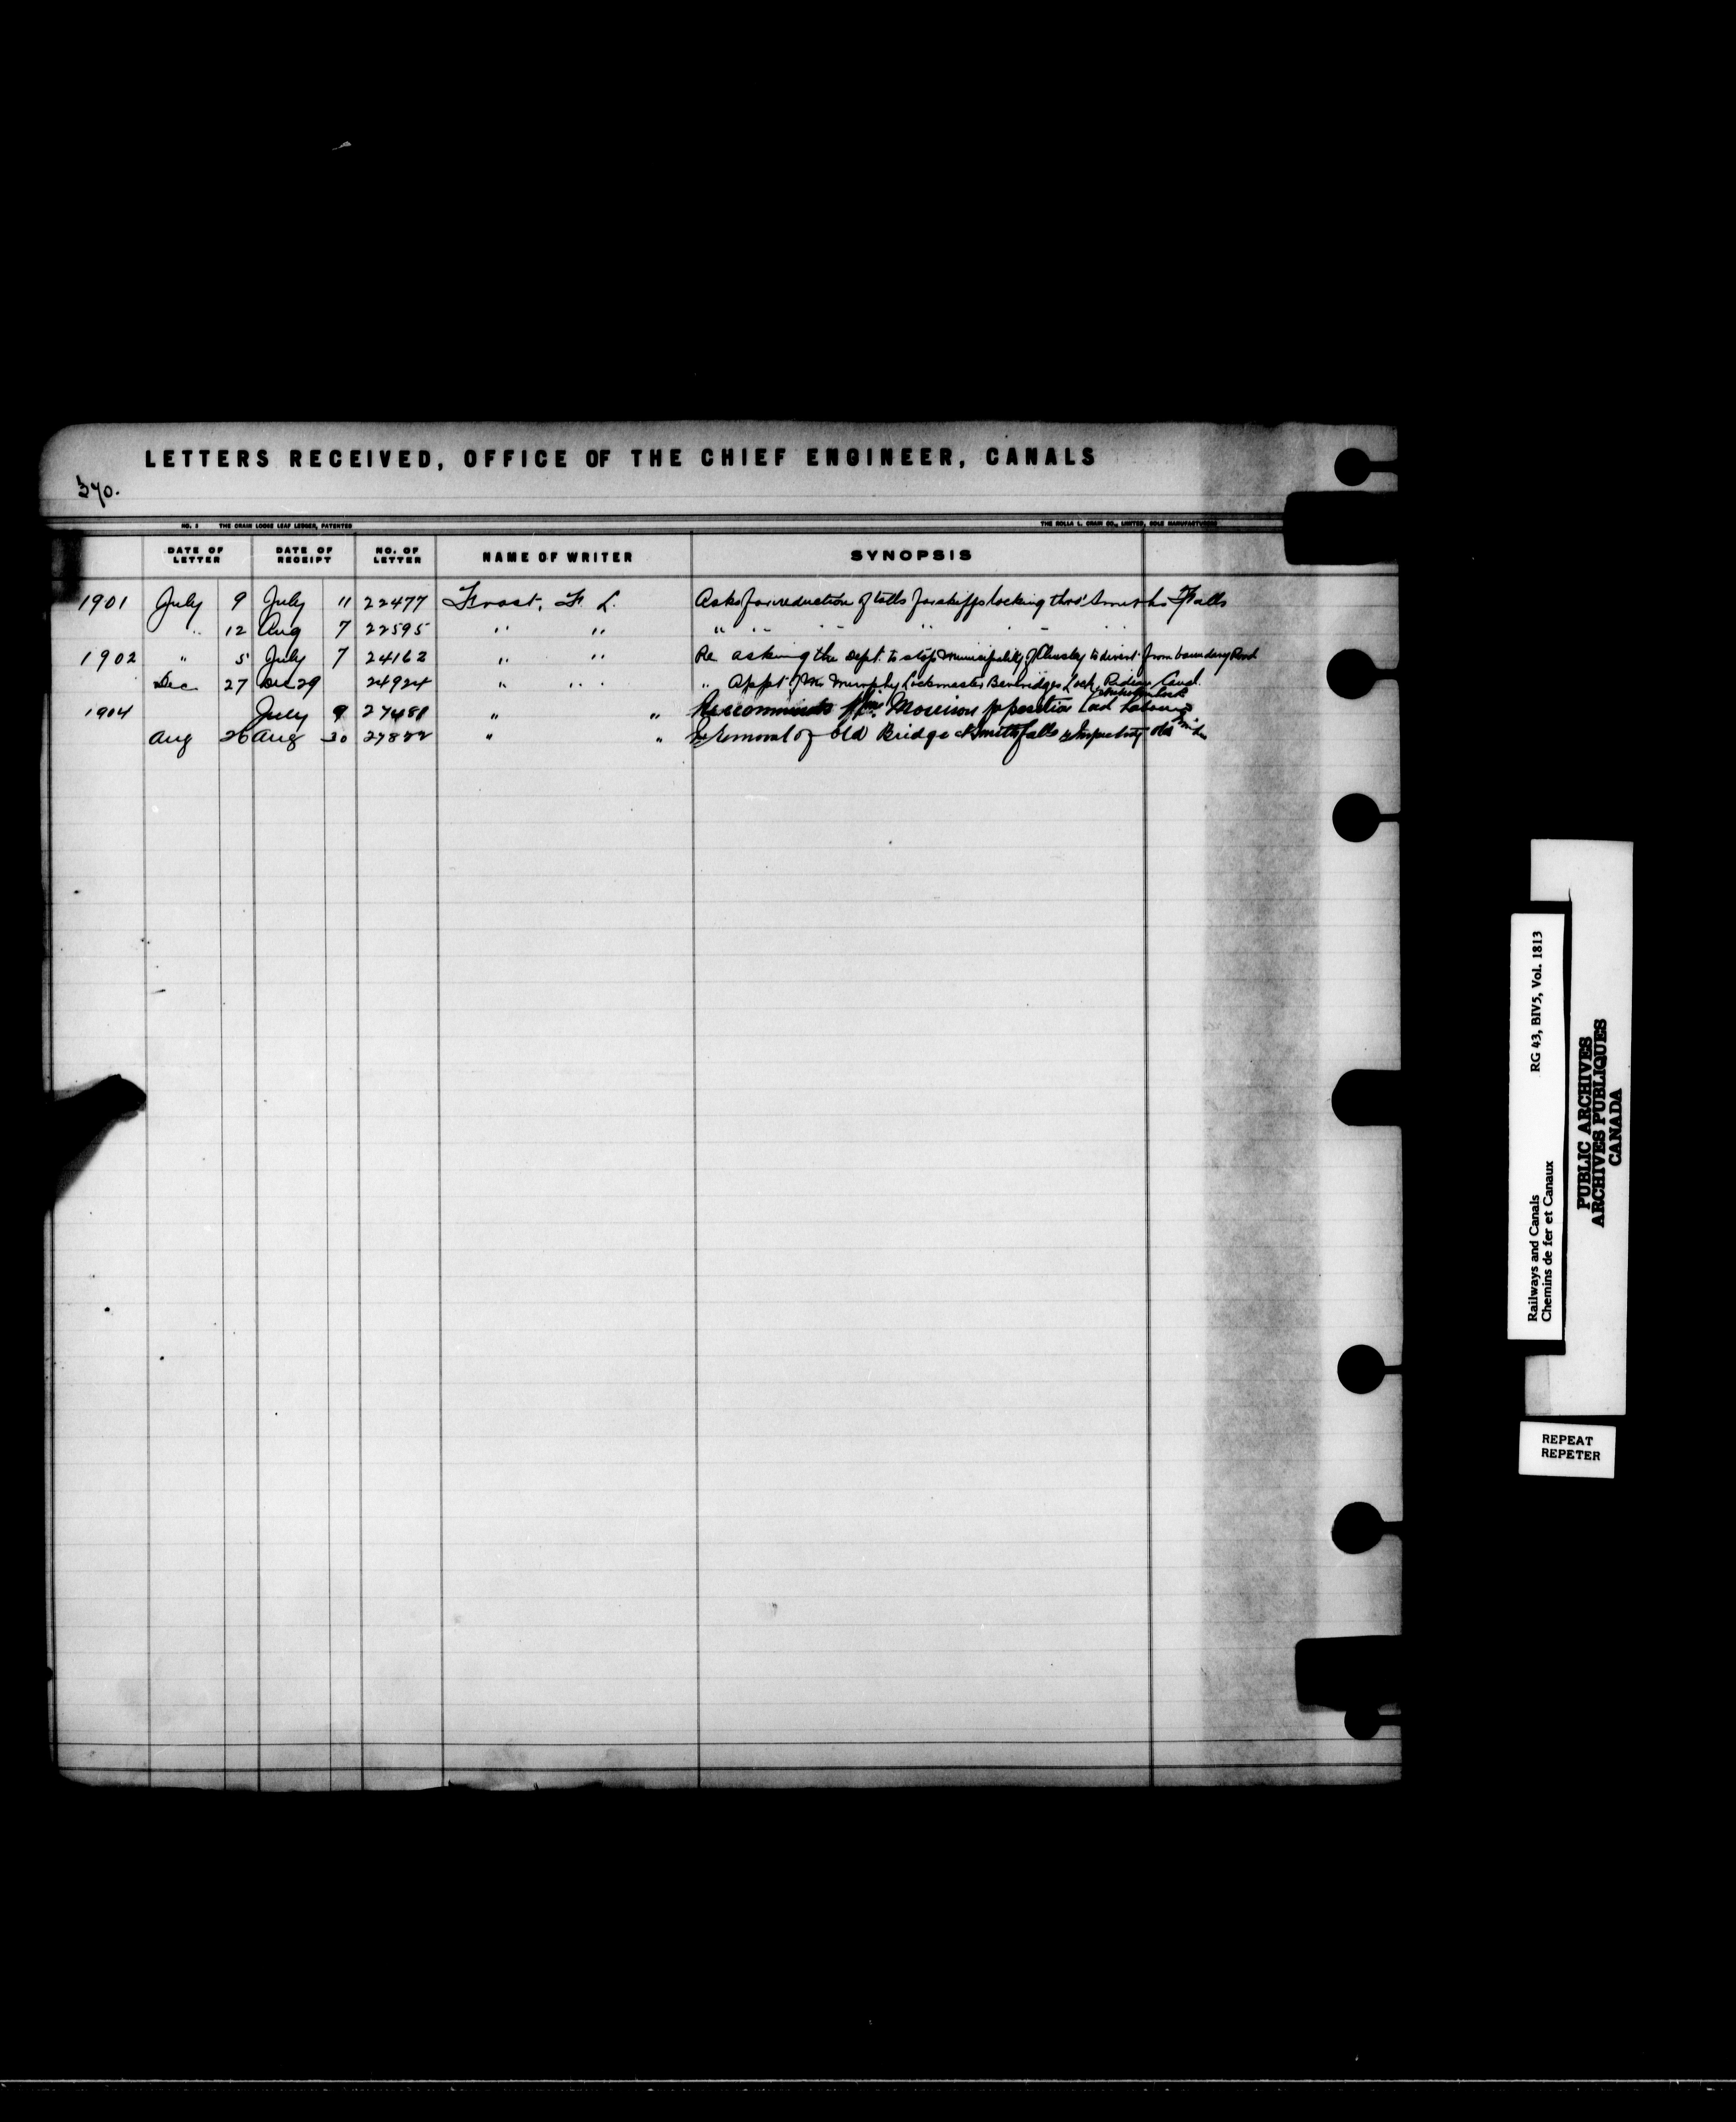 LETTERS RECEIVED, OFFICE OF THE CHIEF ENGINEER, CANALS
370.
NO. 2 THE CRAIN LOOSE LEAF LEDGER, PATENTED THE ROLLA L. CRAIN CO., LIMITED, SOLE MANUFACTURERS
DATE OF LETTER DATE OF RECEIPT NO. OF LETTER NAME OF WRITER SYNOPSIS
1901 July 9 July 11 22477 Frost, F. L. Asks for reduction of tolls for skiffs locking thro' Smiths Falls
" 12 Aug 7 22595 " " " " " " " " "
1902 " 5 July 7 24162 " " Re asking the Dept. to stop Municipality of to divert from boundary Road
Dec 27 Dec 29 24924 " " " Appt of Mr Murphy Lockmaster Beveridges Lock, Rideau Canal.
1904 July 9 27481 " " Recommends Wm. Morrison for position Lock Labourer
Aug 26 Aug 30 27822 " " Removal of Old Bridge at Smiths falls & Inspecting old
RG 43, BIV5, Vol. 1813
Railways and Canals
Chemins de fer et Canaux
PUBLIC ARCHIVES
ARCHIVES PUBLIQUES
CANADA
REPEAT
REPETER